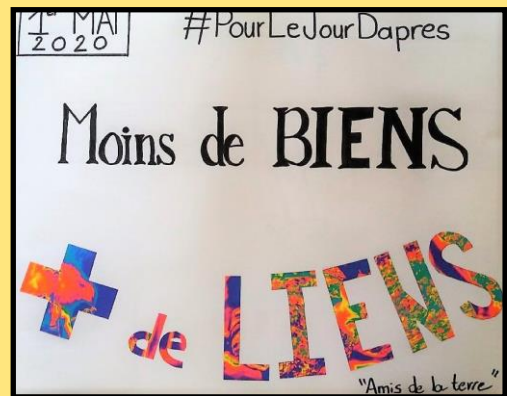 1er MAI
2020
#PourLeJourDapres
Moins de BIENS
+ de LIENS
"Amis de la terre"